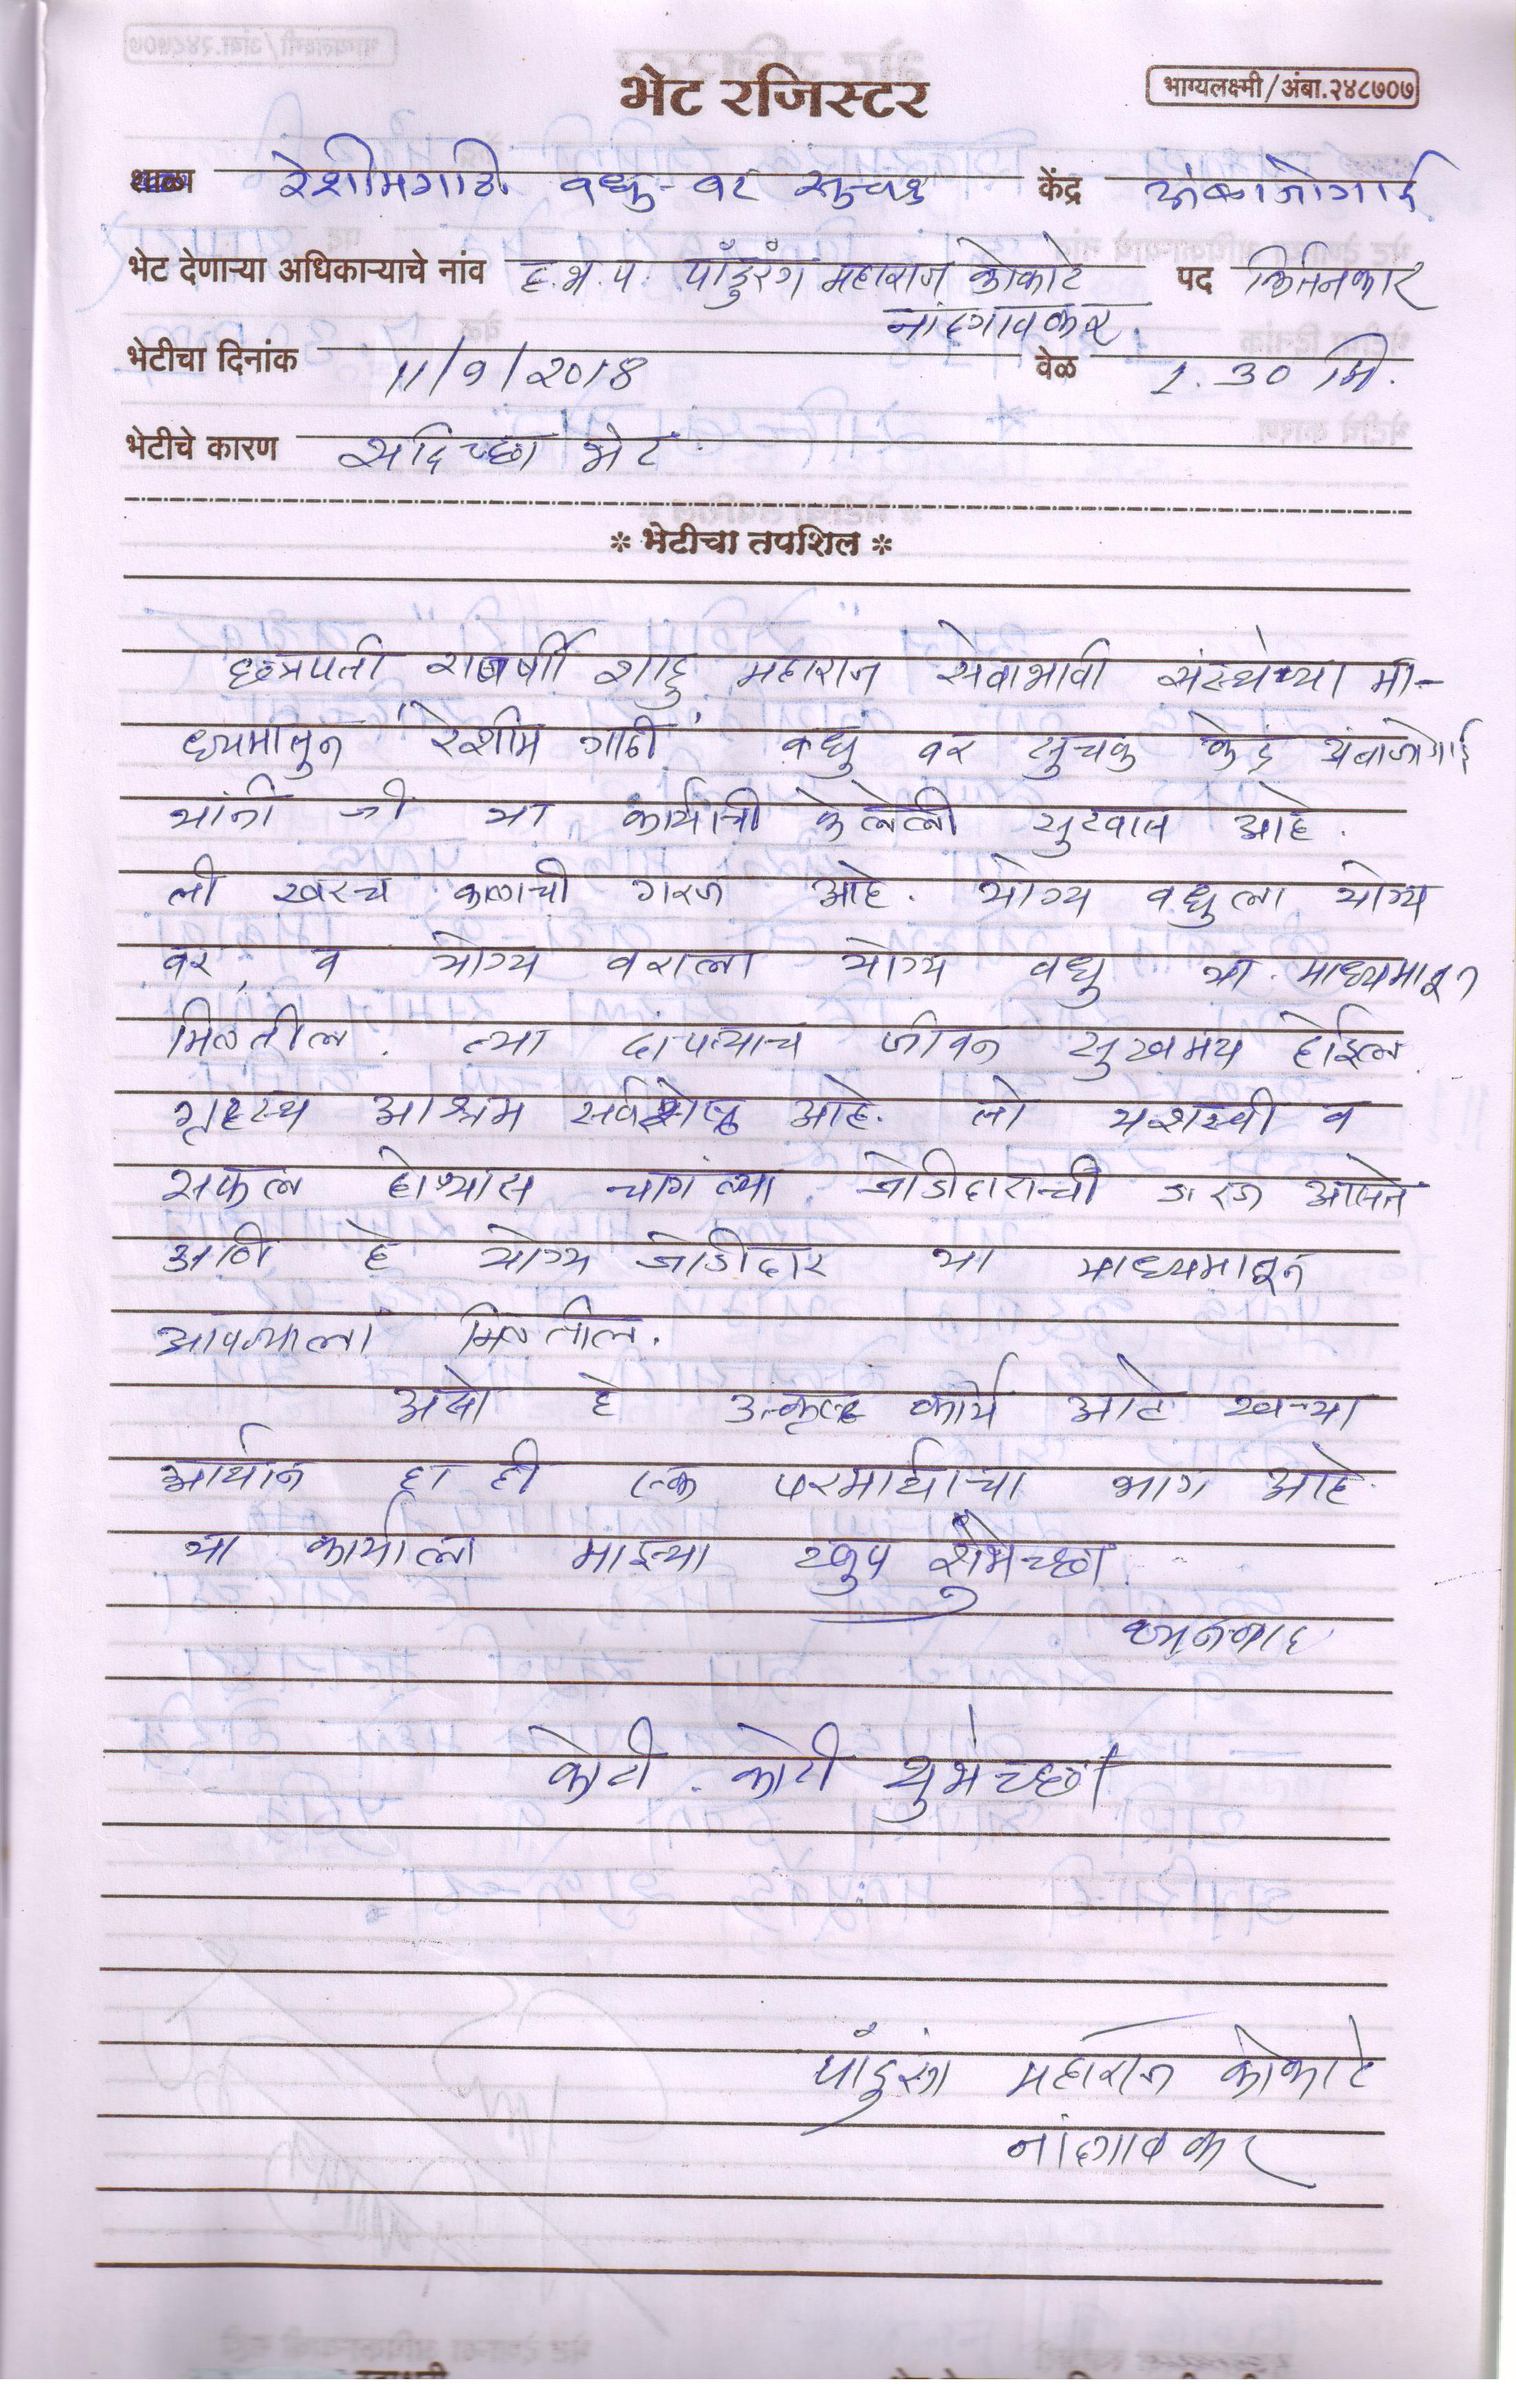 भेट रजिस्टर
भाग्यलक्ष्मी/अंबा.२४८७०७
शाळा रेशीमगाठी वधु-वर सुचक केंद्र अंबाजोगाई
भेट देणाऱ्या अधिकाऱ्याचे नांव ह.भ.प. पांडुरंग महाराज कोकाटे पद किर्तनकार
नांदगावकर.
भेटीचा दिनांक 11/9/2018 वेळ 1.30 मि.
भेटीचे कारण सदिच्छा भेट
* भेटीचा तपशिल *
छत्रपती राजर्षी शाहु महाराज सेवाभावी संस्थेच्या मा-
ध्यमातुन 'रेशीम गाठी' वधु वर सुचक केंद्र अंबाजोगाई
यांनी जी या कार्याची केलेली सुरवात आहे.
ती खरच काळाची गरज आहे. योग्य वधुला योग्य
वर, व योग्य वराला योग्य वधु या माध्यमातून
मिळतील. त्या दांपत्याच जीवन सुखमय होईल.
गृहस्थ आश्रम सर्वश्रेष्ठ आहे. तो यशस्वी व
सफल होण्यास चागंल्या जोडीदाराची गरज आसते
आणि हे योग्य जोडीदार या माध्यमातून
आपल्याला मिळतील.
असो हे उत्कृष्ठ कार्य आहे खऱ्या
आर्थान हा ही एक परमार्थाचा भाग आहे.
या कार्याला माझ्या खुप शुभेच्छा
धन्यवाद
कोटी. कोटी शुभेच्छा
पांडुरंग महाराज कोकाटे
नांदगावकर